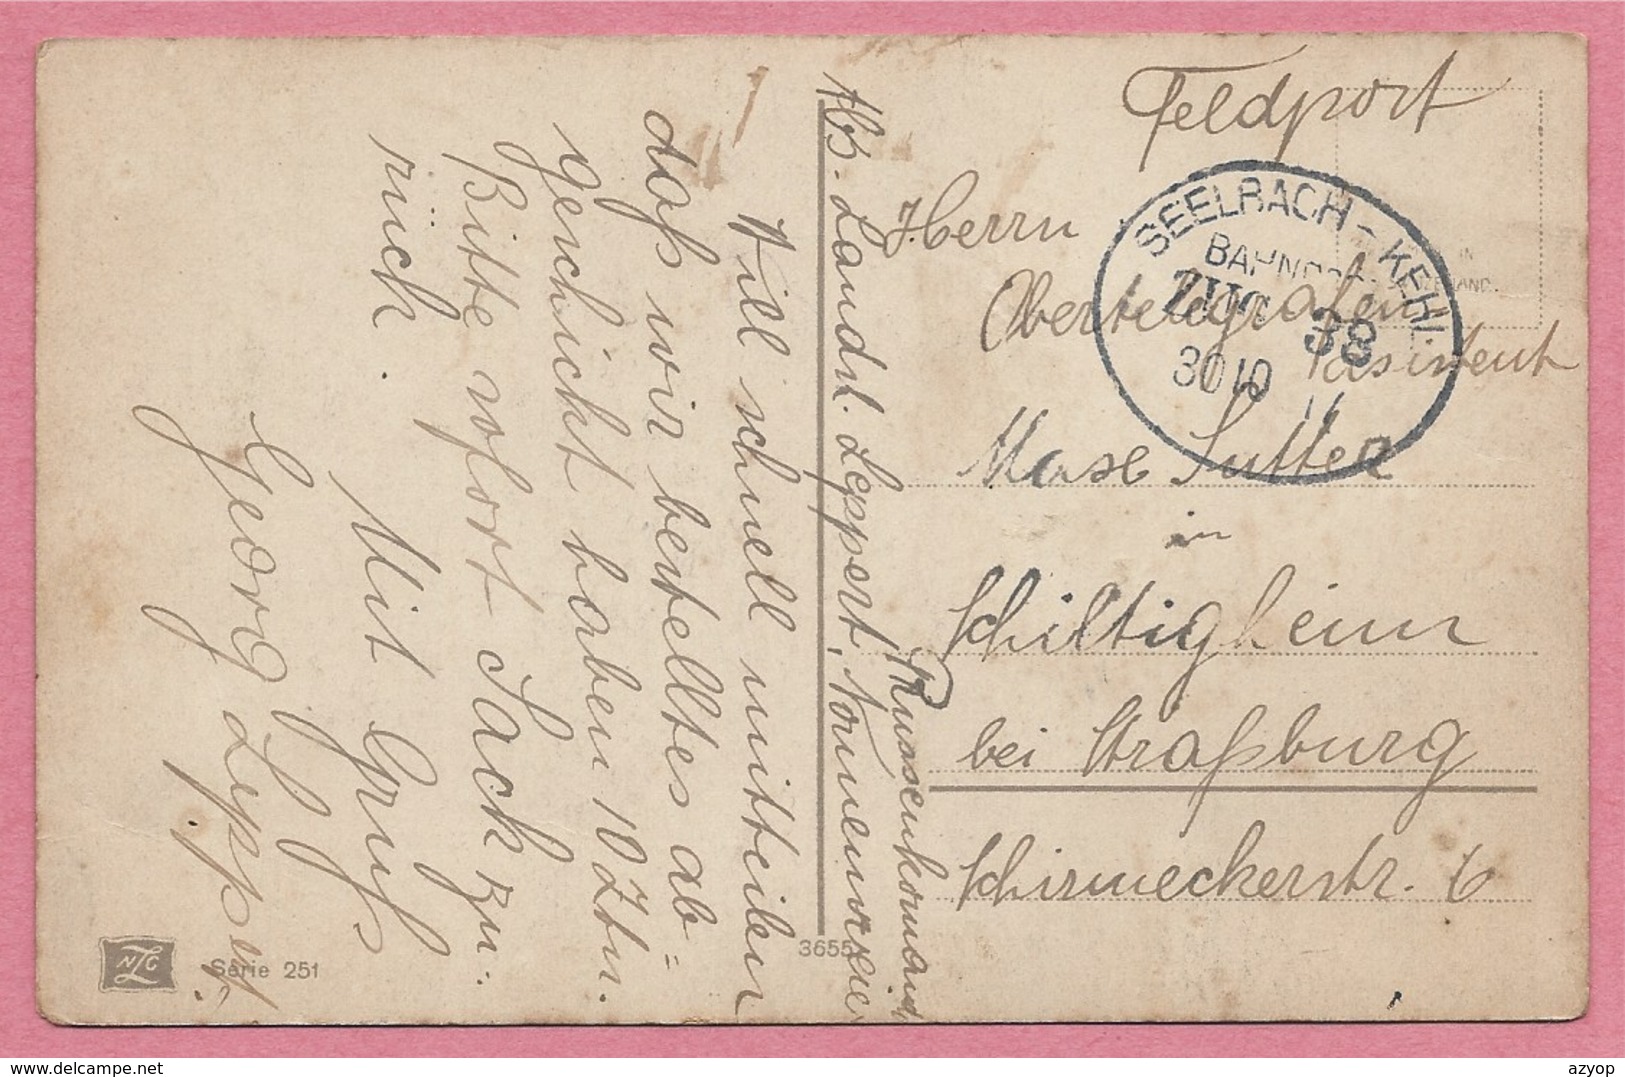 Feldpost
Herrn
Obertelegrafen
assistent
Max Sutter
in
Schiltigheim
bei Straßburg
Schirmeckerstr. 6
SEELBACH - KEHL
BAHNPOST
ZUG 38
30 10
Abs. Landst. Leppert, Nonnenweier
Russenkomando
Will schnell mitteilen
daß wir bestelltes ab=
geschickt haben 10 Ztn.
Bitte sofort Sack zu=
rück.
Mit Gruß
Georg Leppert.
NZG
Serie 251
3655
azyop
delcampe.net